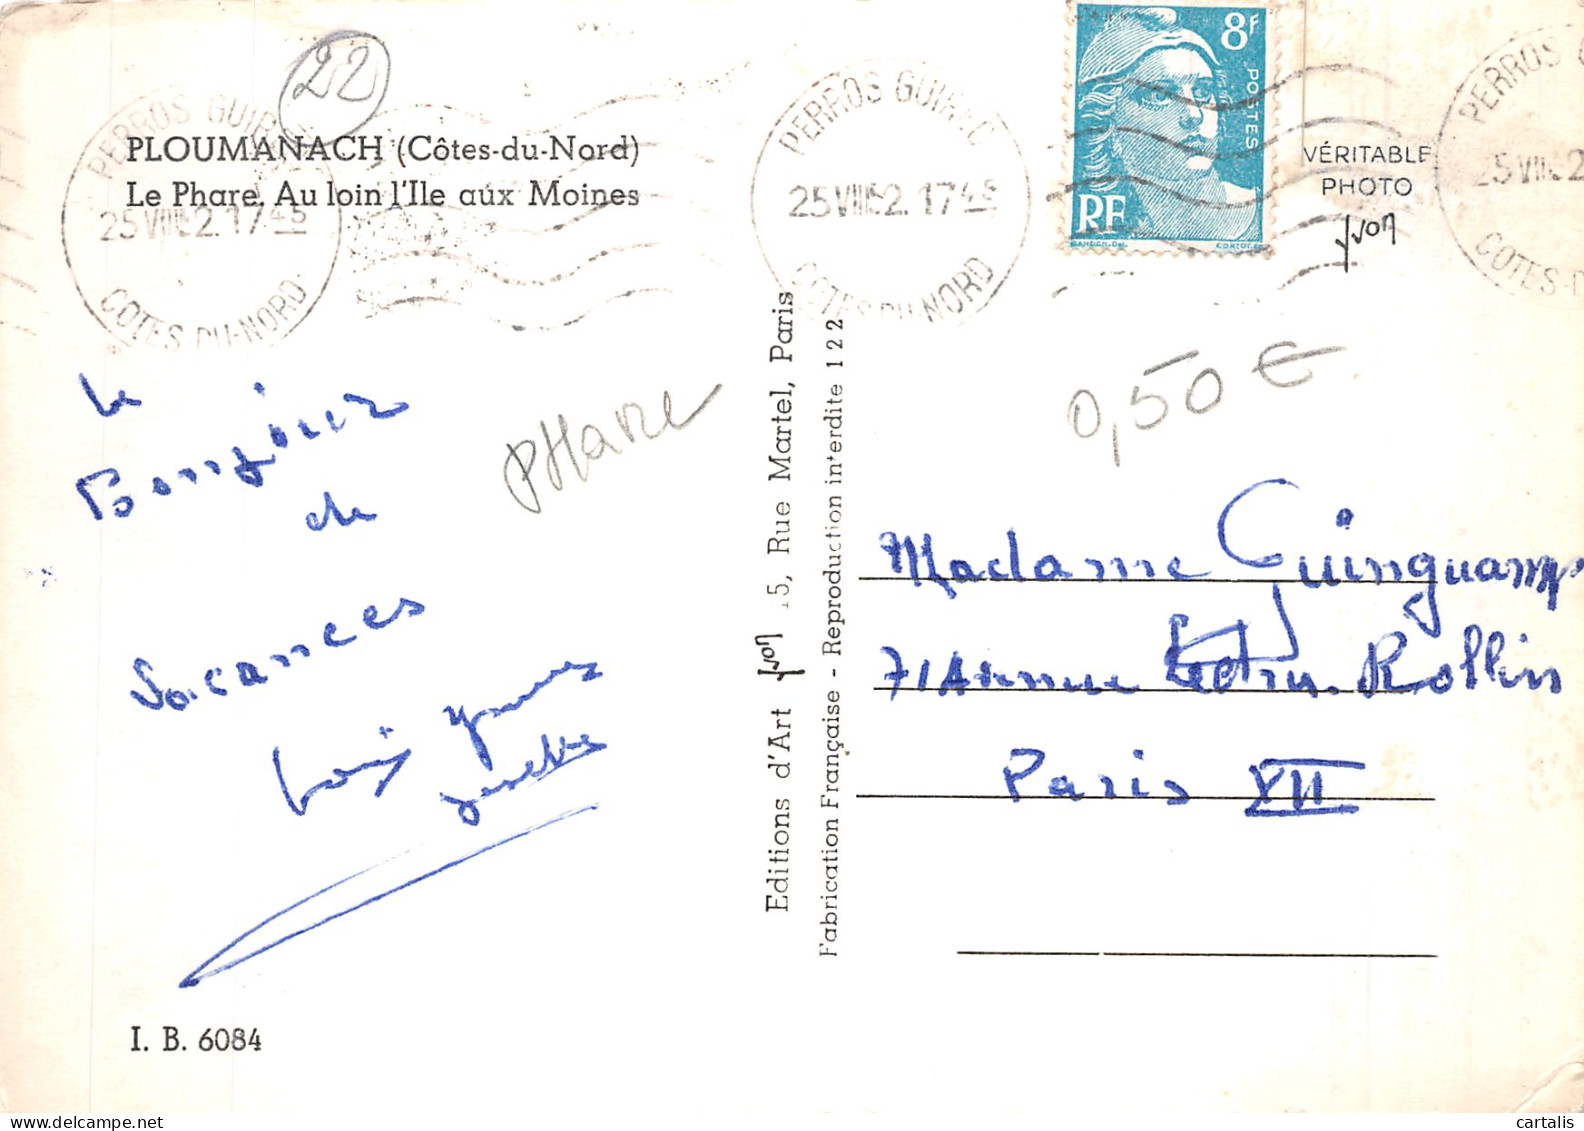 22
PERROS GUIREC
25 VIII 52. 17 45
COTES-DU-NORD
PLOUMANACH (Côtes-du-Nord)
Le Phare. Au loin l'Ile aux Moines
Le
Bonjour
de
vacances
Louis
PHare
I. B. 6084
Editions d'Art Yvon 15, Rue Martel, Paris
Fabrication Française - Reproduction interdite 122
PERROS GUIREC
25 VIII 52. 17 45
COTES-DU-NORD
8F
POSTES
RF
GANDON. Del.
VÉRITABLE
PHOTO
Yvon
PERROS G
25 VIII 52
COTES-D
0,50 €
Madame Guinguamp
71 Avenue Ledru-Rollin
Paris XII
cartalis